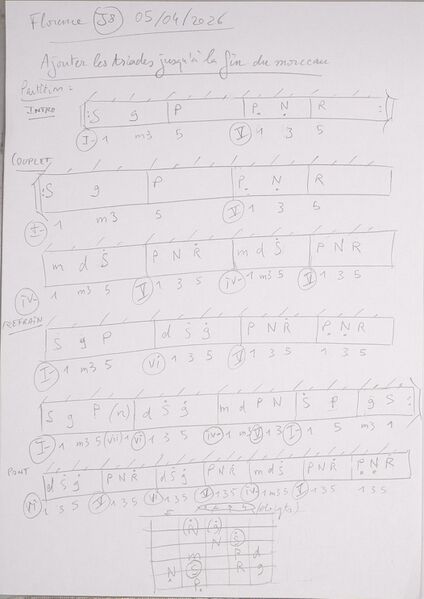 Florence J3 05/04/2026
Ajouter les triades jusqu'à la fin du morceau
Partition :
INTRO
S g P Ṗ N R
I- 1 m3 5 V 1 3 5
COUPLET
S g P P N R
I- 1 m3 5 V 1 3 5
m d Ṡ P N Ṙ m d Ṡ P N R
iv- 1 m3 5 V 1 3 5 iv- 1 m3 5 V 1 3 5
REFRAIN
S g P d Ṡ ġ P N Ṙ P N R
I- 1 m3 5 vi 1 3 5 V 1 3 5 1 3 5
S g P (n) d Ṡ ġ m d P N Ṡ P g S
I- 1 m3 5 vi 1 3 5 iv- 1 m3 V 1 3 I- 1 5 m3 1
PONT
d Ṡ ġ P N Ṙ d Ṡ ġ P N Ṙ m d Ṡ P N R P N R
vi 1 3 5 V 1 3 5 vi 1 3 5 V 1 3 5 iv- 1 m3 5 V 1 3 5 1 3 5
(doigts)
(Ṅ) (ġ)
N Ṡ
m P d
N S R g
P